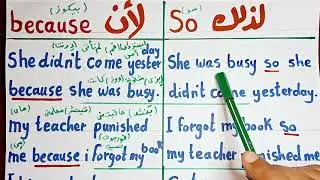 because لأن
(بيكوز)
She didn't come yesterday
because she was busy.
my teacher punished
me because i forgot my book
So لذلك
(سو)
She was busy so she
didn't come yesterday.
I forgot my book so
my teacher punished me